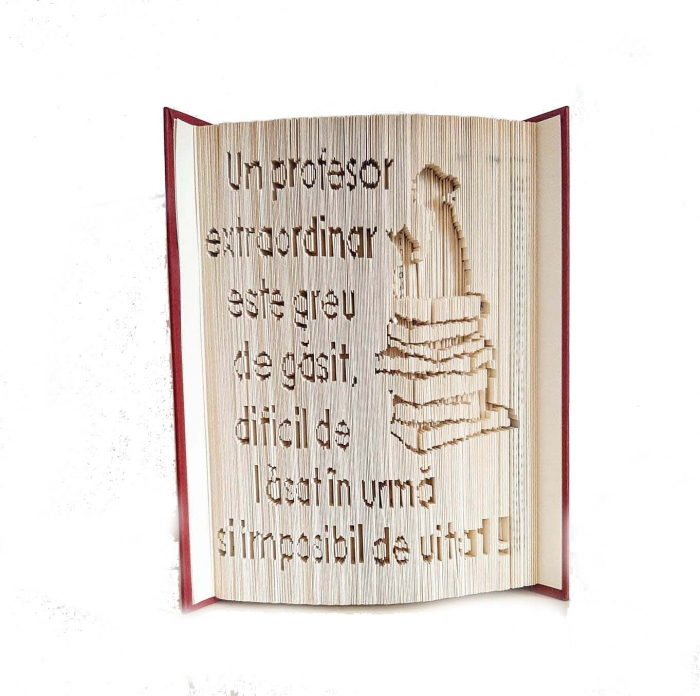 Un profesor
extraordinar
este greu
de găsit,
dificil de
lăsat în urmă
si imposibil de uitat!